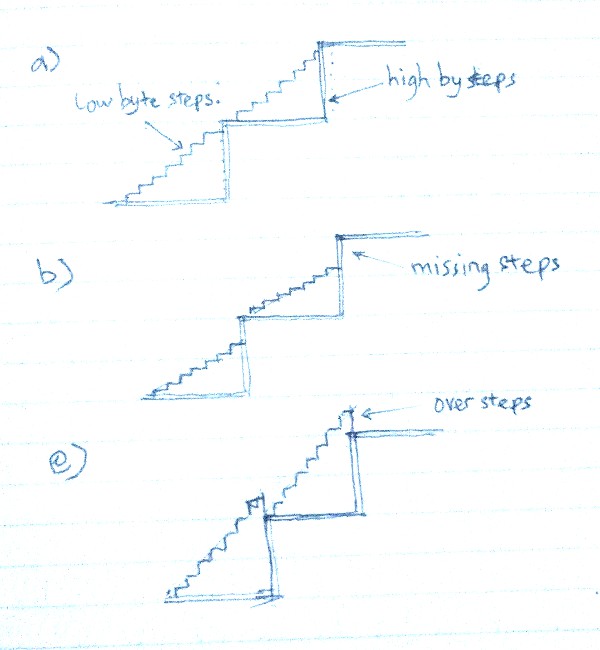 a)
low byte steps:
high by steps
b)
missing steps
over steps